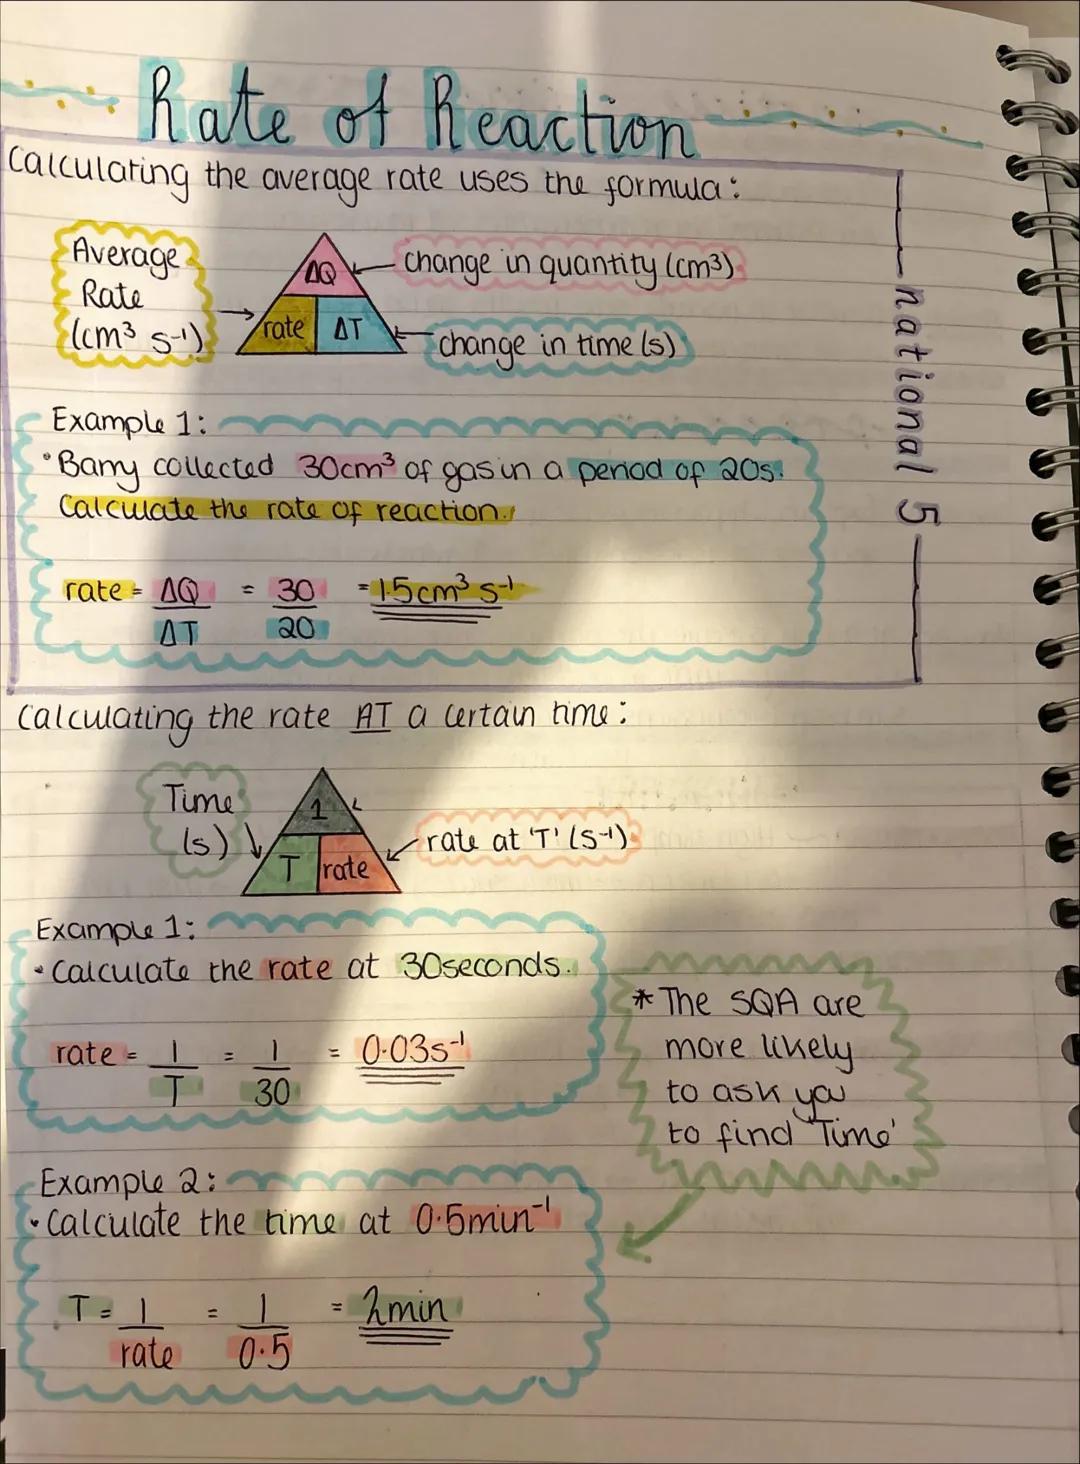 Rate of Reaction
Calculating the average rate uses the formula:
Average
Rate
(cm³ s⁻¹)
ΔQ
rate ΔT
change in quantity (cm³)
change in time (s)
national 5
Example 1:
• Barry collected 30cm³ of gas in a period of 20s.
Calculate the rate of reaction.
rate = ΔQ = 30 = 1.5cm³ s⁻¹
ΔT 20
Calculating the rate AT a certain time:
Time
(s)
1
T rate
rate at 'T' (s⁻¹)
Example 1:
• Calculate the rate at 30seconds.
rate = 1 = 1 = 0.03s⁻¹
T 30
* The SQA are
more likely
to ask you
to find 'Time'
Example 2:
• Calculate the time at 0.5min⁻¹
T = 1 = 1 = 2min
rate 0.5